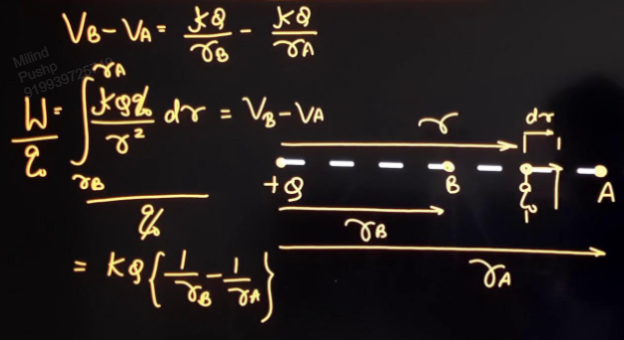 V_B - V_A = kQ/r_B - kQ/r_A
Milind
Pushp
W/q₀ = ∫_{r_B}^{r_A} kQq₀/r² dr / q₀ = V_B - V_A
= kQ{1/r_B - 1/r_A}
dr
r
+Q
B
q₀
A
r_B
r_A